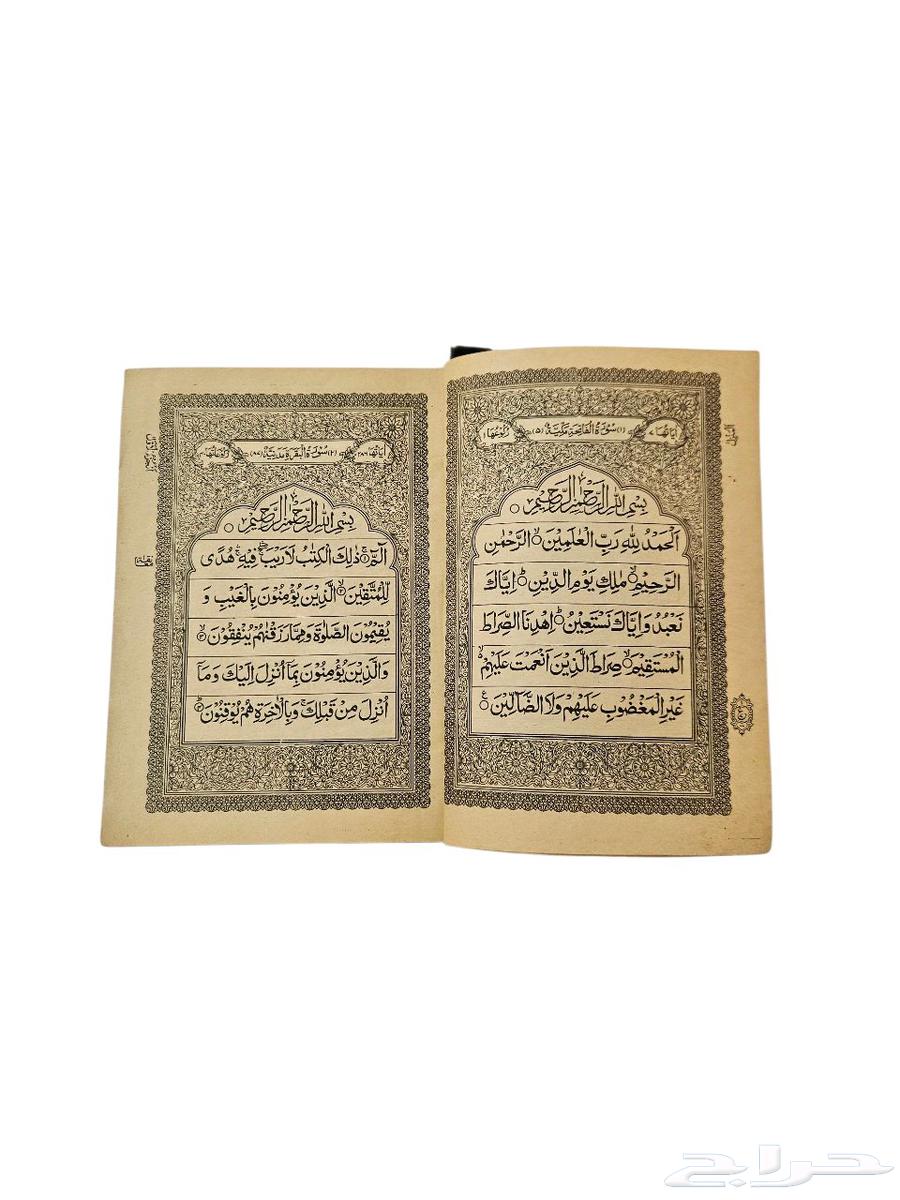 اٰيَاتُهَا ٧ (١) سُوْرَةُ الْفَاتِحَةِ مَكِّيَّةٌ (٥) رُكُوْعُهَا ١
بِسْمِ اللّٰهِ الرَّحْمٰنِ الرَّحِيْمِ ○
اَلْحَمْدُ لِلّٰهِ رَبِّ الْعٰلَمِيْنَ ۙ○ الرَّحْمٰنِ
الرَّحِيْمِ ۙ○ مٰلِكِ يَوْمِ الدِّيْنِ ؕ○ اِيَّاكَ
نَعْبُدُ وَاِيَّاكَ نَسْتَعِيْنُ ؕ○ اِهْدِنَا الصِّرَاطَ
الْمُسْتَقِيْمَ ۙ○ صِرَاطَ الَّذِيْنَ اَنْعَمْتَ عَلَيْهِمْ ۙ۬
غَيْرِ الْمَغْضُوْبِ عَلَيْهِمْ وَلَا الضَّآلِّيْنَ ○
اٰيَاتُهَا ٢٨٦ (٢) سُوْرَةُ الْبَقَرَةِ مَدَنِيَّةٌ (٨٧)
بِسْمِ اللّٰهِ الرَّحْمٰنِ الرَّحِيْمِ ○
الٓمّٓ ۚ ذٰلِكَ الْكِتٰبُ لَا رَيْبَ ۛۖ فِيْهِ ۛۚ هُدًى
لِّلْمُتَّقِيْنَ ۙ الَّذِيْنَ يُؤْمِنُوْنَ بِالْغَيْبِ وَ
يُقِيْمُوْنَ الصَّلٰوةَ وَمِمَّا رَزَقْنٰهُمْ يُنْفِقُوْنَ ۙ
وَالَّذِيْنَ يُؤْمِنُوْنَ بِمَآ اُنْزِلَ اِلَيْكَ وَمَآ
اُنْزِلَ مِنْ قَبْلِكَ ۚ وَبِالْاٰخِرَةِ هُمْ يُوْقِنُوْنَ ؕ
حراج